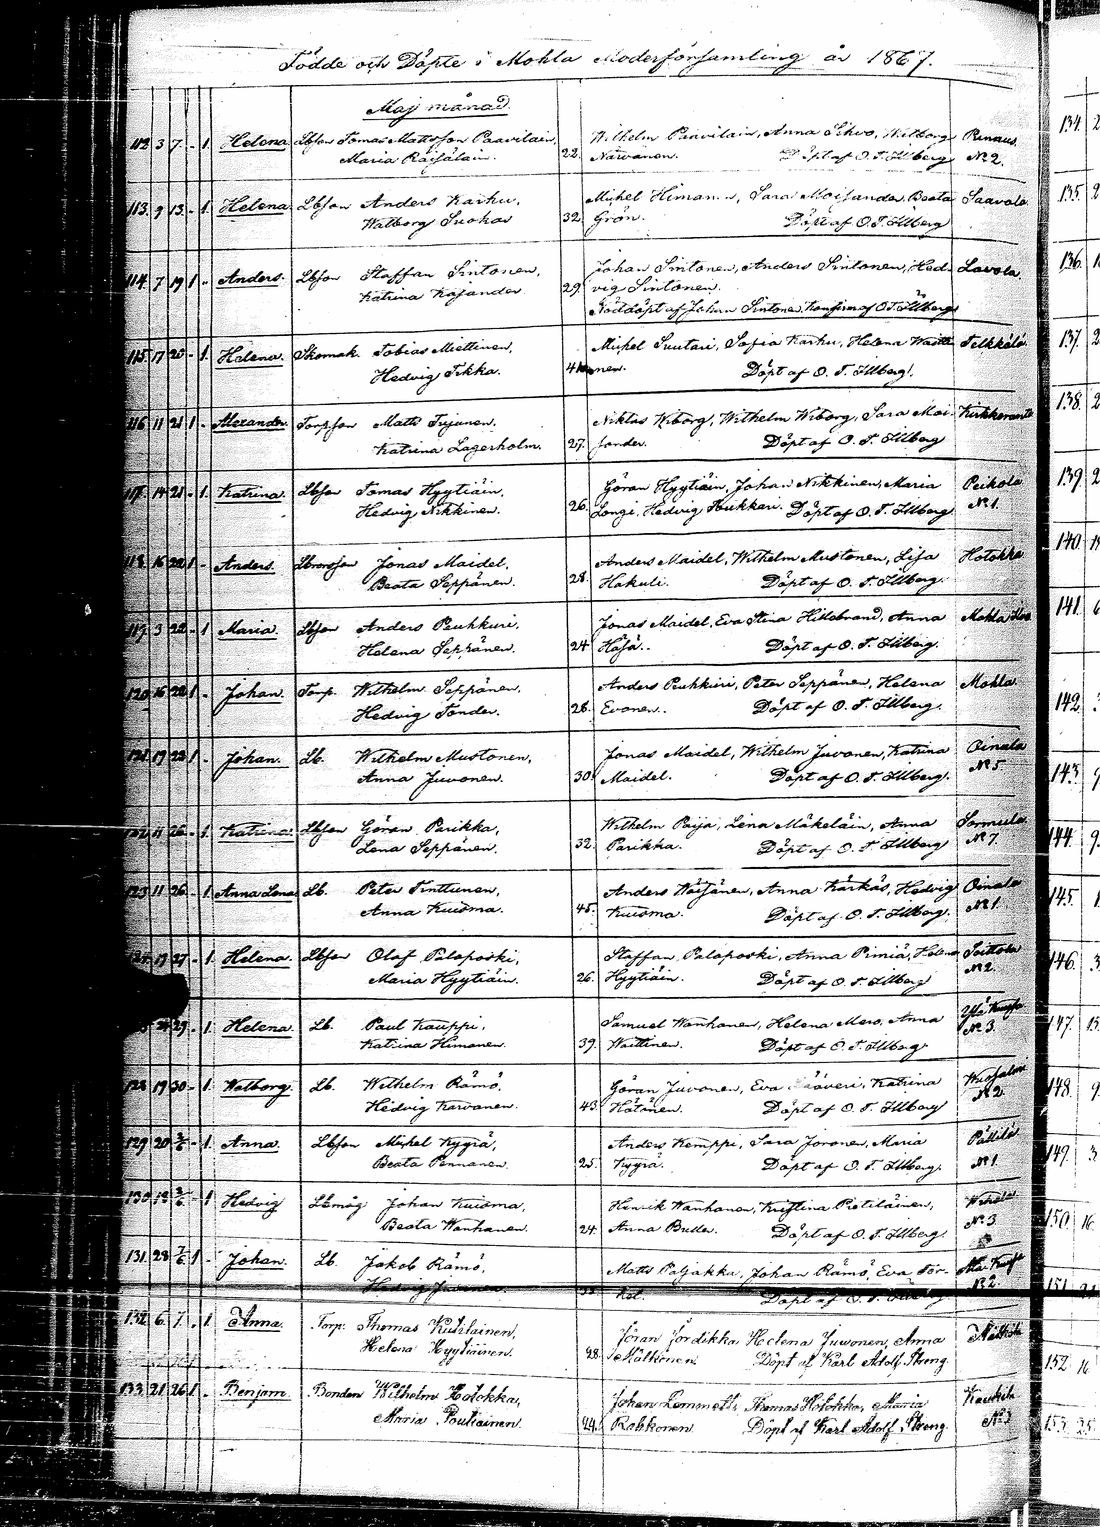 Födde och Döpte i Mohla Moderförsamling år 1867.
Maj månad
112 3 7. - 1. Helena Lbson Tomas Mattsson Paavilain, 22. Wilhelm Paavilain, Anna Sihvo, Walborg Pinnus
Maria Räisälain. Narvanen. Döpt af O. T. Illberg N:o 2.
113. 9 13. - 1. Helena Lbson Anders Karhu, 32. Mickel Himanen, Sara Moisander, Beata Saavola
Walborg Suokas Grön. Döpt af O. T. Illberg
114. 7 19 1 - Anders. Lbson Staffan Sintonen, 29. Johan Sintonen, Anders Sintonen, Hed- Lavola
Katrina Kajander vig Sintonen.
Nöddöpt af Johan Sintonen, Konfirm. af O. T. Illberg
115. 17 20 - 1. Helena. Skomak. Tobias Miettinen, 41. Mickel Suutari, Sofia Karhu, Helena Telkkälä
Hedvig Tikka. nen. Döpt af O. T. Illberg.
116. 11 21 1 - Alexander. Torpson Matts Tujunen, 27. Niklas Wiborg, Wilhelm Wiborg, Sara Moi- Kirkkoranta
Katrina Lagerholm. sander. Döpt af O. T. Illberg
117. 14 21 - 1. Katrina. Lbson Tomas Hyytiäin, 26. Göran Hyytiäin, Johan Nikkinen, Maria Peikola
Hedvig Nikkinen. Longi, Hedvig Hukkari. Döpt af O. T. Illberg N:o 1.
118. 16 22 1 - Anders. Lbrorson Jonas Maidel, 28. Anders Maidel, Wilhelm Mustonen, Lisa Hotokka
Beata Seppänen. Hakuli. Döpt af O. T. Illberg.
119. 3 22 - 1 Maria. Lbson Anders Puhkuri, 24 Jonas Maidel, Eva Stina Hildebrand, Anna Mohla
Helena Seppänen. Häjä. Döpt af O. T. Illberg.
120. 16 22 1 - Johan. Torp. Wilhelm Seppänen, 28. Anders Puhkuri, Peter Seppänen, Helena Mohla
Hedvig Tonder. Evonen. Döpt af O. T. Illberg.
121. 19 23 1 - Johan. Lb. Wilhelm Mustonen, 30. Jonas Maidel, Wilhelm Juvonen, Katrina Oinala
Anna Juvonen. Maidel. Döpt af O. T. Illberg. N:o 5.
122. 11 26. - 1. Katrina. Lbson Göran Parikka, 32. Wilhelm Paija, Lena Mäkeläin, Anna Sormula
Lena Seppänen. Parikka. Döpt af O. T. Illberg N:o 7.
123. 11 26. - 1 Anna Lena Lb. Peter Tinttunen, 45. Anders Wäisänen, Anna Kärkäs, Hedvig Oinala
Anna Kuisma. Kuisma. Döpt af O. T. Illberg. N:o 1.
19 27. - 1. Helena. Lbson Olof Pulaposki, 26. Staffan Pulaposki, Anna Piniä, Helena Soittola
Maria Hyytiäin. Hyytiäin. Döpt af O. T. Illberg N:o 2.
24 29. - 1. Helena. Lb. Paul Kauppi, 39. Samuel Wanhanen, Helena Mero, Anna
Katrina Himanen. Waittinen. Döpt af O. T. Illberg N:o 3.
128 19 30 - 1. Walborg. Lb. Wilhelm Rämö, 43. Göran Juvonen, Eva Katrina
Hedvig Karvanen. Hätönen. Döpt af O. T. Illberg N:o 2
129. 20 2/6 - 1. Anna. Lbson Mickel Kyyrä, 25. Anders Kemppi, Sara Joronen, Maria Pällilä
Beata Pennanen. Kyyrä. Döpt af O. T. Illberg. N:o 1.
130. 18 2/6 - 1 Hedvig Lbmåg Johan Kuisma, 24. Henrik Wanhanen, Kristina Pietiläinen,
Beata Wanhanen. Anna Buller. Döpt af O. T. Illberg. N:o 3
131. 28 7/6 1 - Johan. Lb. Jakob Rämö, Matts Paljakka, Johan Rämö, Eva Tor-
Hedvig Juvonen. kel. Döpt af O. T. Illberg N:o 2.
132. 6 7. - 1 Anna. Torp. Thomas Kutilainen, 28. Jöran Jördikka Helena Juvonen, Anna
Helena Hyytiäinen. Mälkönen. Döpt af Karl Adolf Streng.
133. 21 26 1 - Benjam. Bonden Wilhelm Hotokka, 24. Johan Lemmetti, Thomas Hotokka, Maria
Maria Poutiainen. Rahkonen. Döpt af Karl Adolf Streng.
134. 2
135. 2
136.
137. 2
138. 2
139. 2
140.
141. 6
142. 3
143.
144. 9.
145.
146. 3
147. 15
148. 9
149. 3
150 16
151.
152 16
153. 25